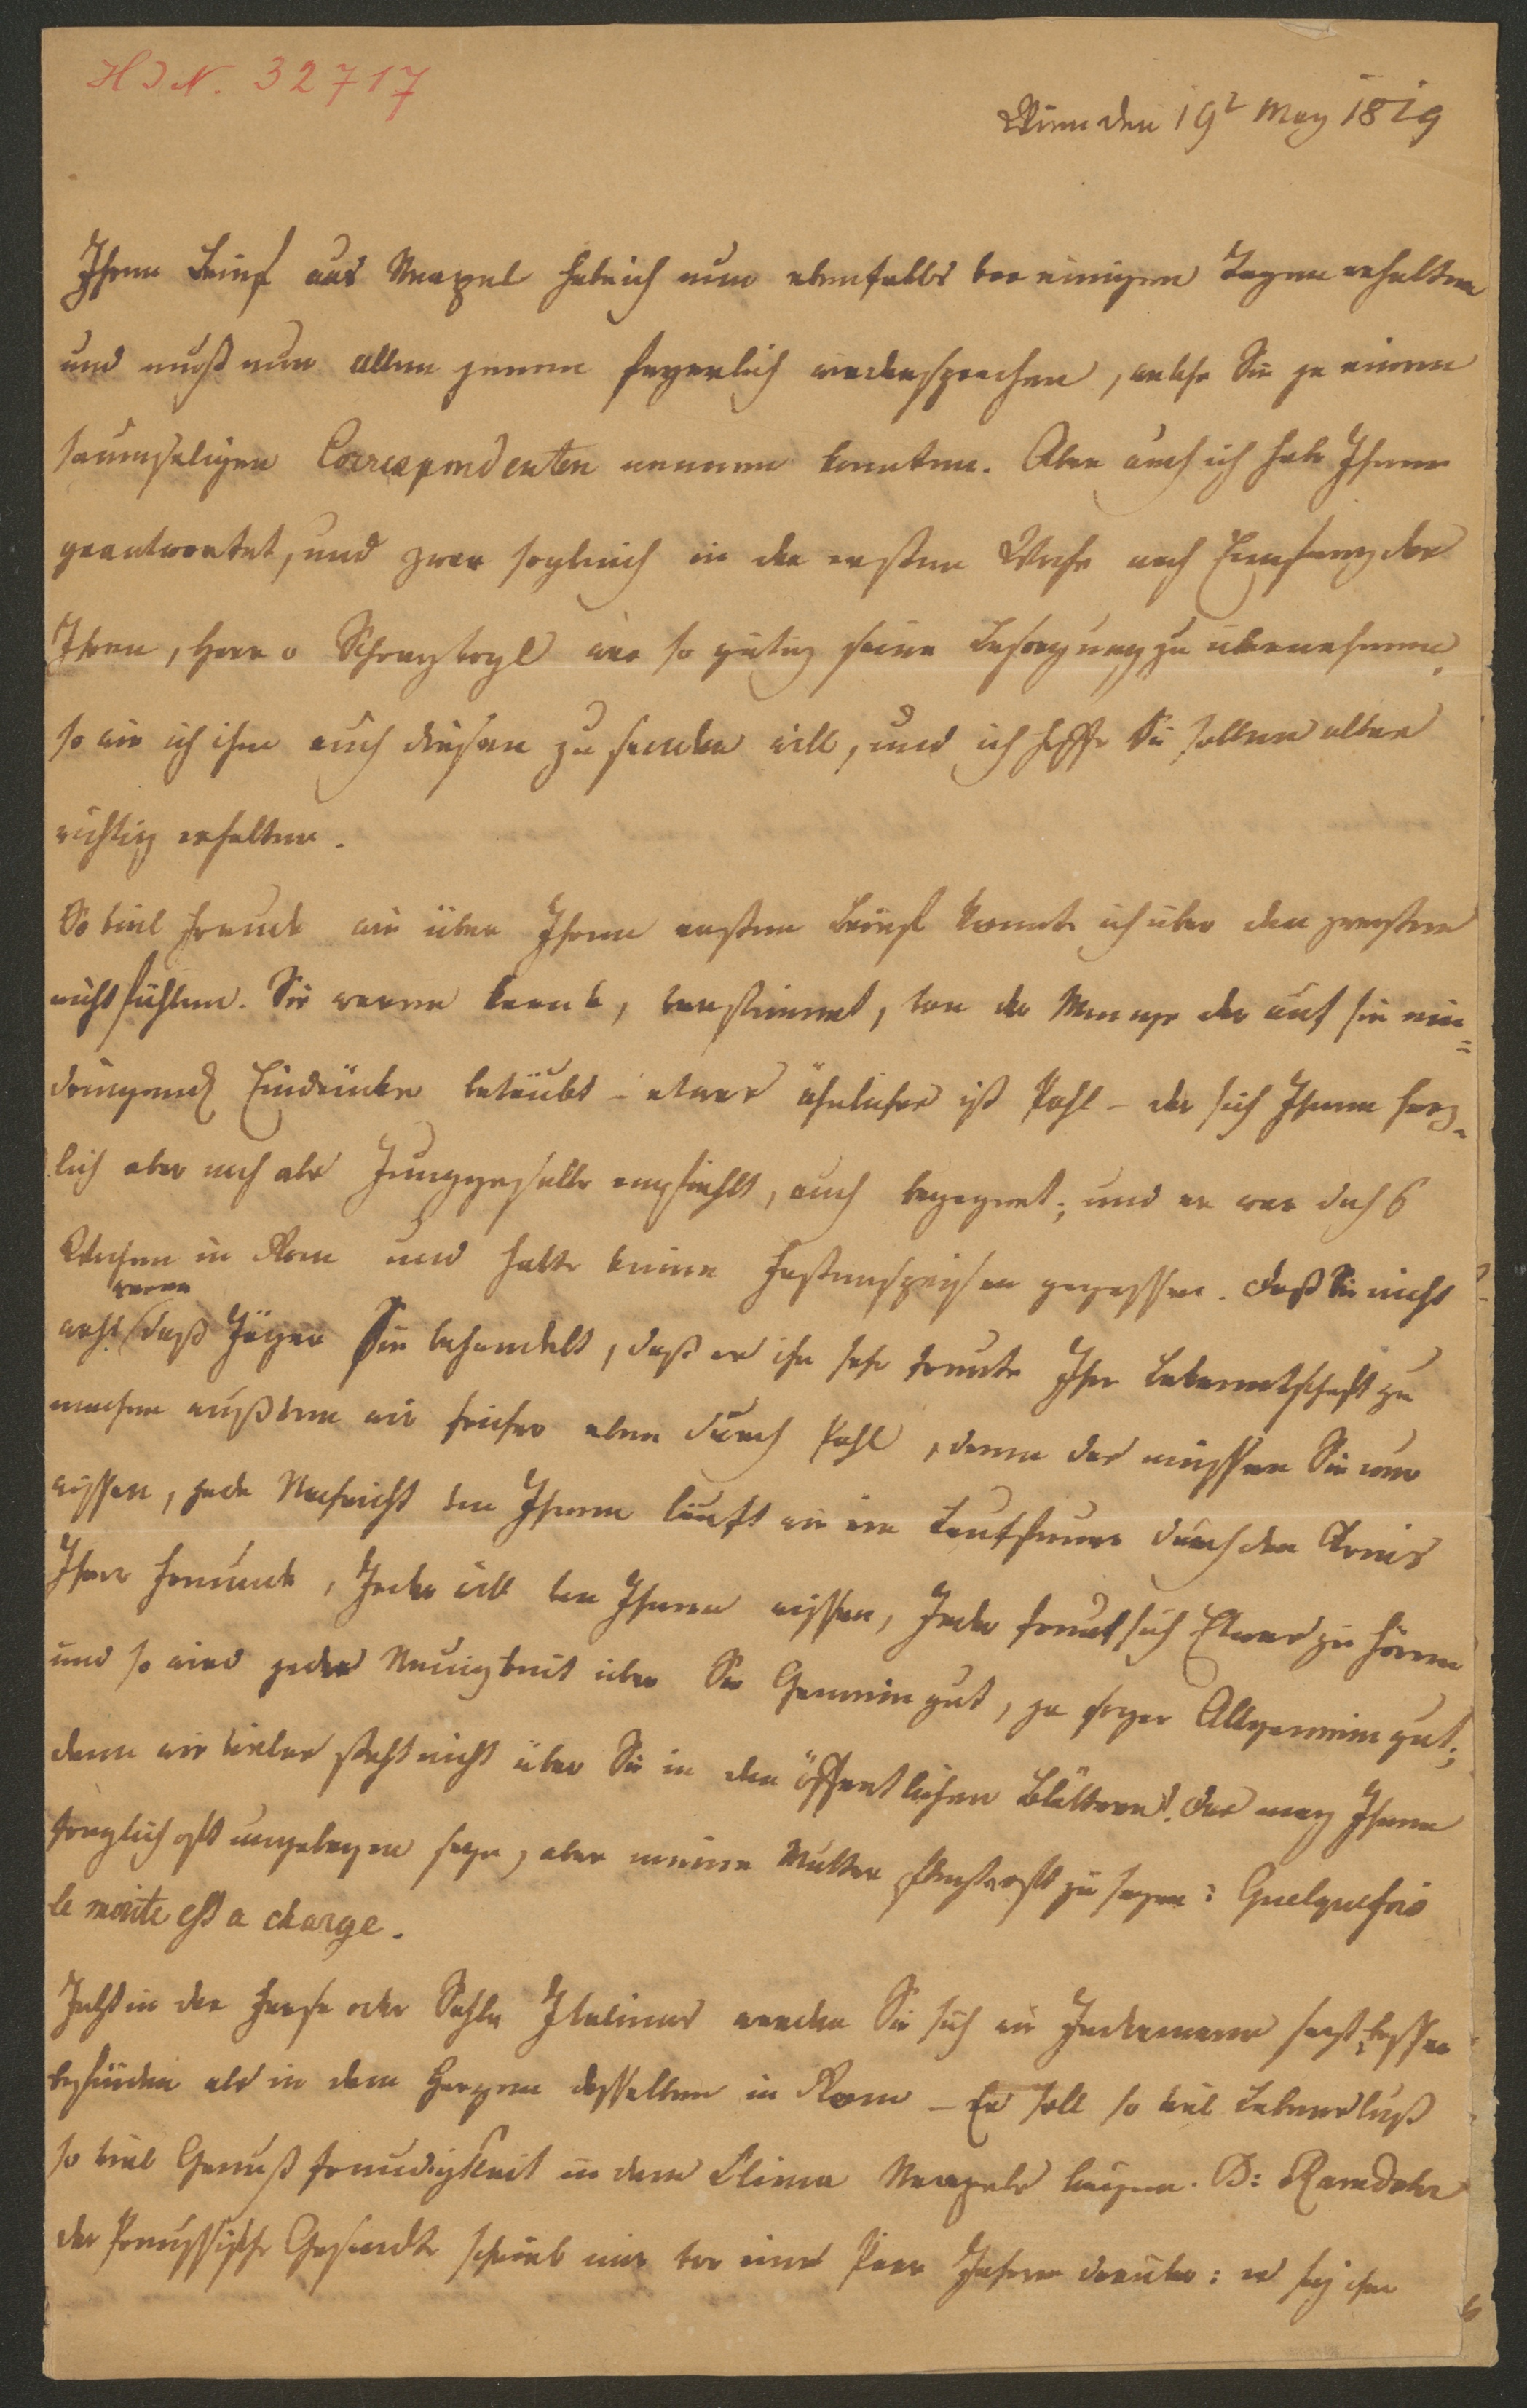 H I N. 32717
Wien den 19t May 1819
Ihren Brief aus Neapel habe ich nun ebenfalls vor einigen Tagen erhalten
und muß nun allen jenen feyerlich wiedersprechen, welche Sie je einen
saumseligen Correspondenten nennen konnten. Aber auch ich habe Ihnen
geantwortet, und zwar sogleich in der ersten Woche nach Empfang des
Ihren, Herr v Schreyvogl war so gütig seine Besorgung zu übernehmen,
so wie ich ihm auch diesen zu senden will, und ich hoffe Sie sollen alles
richtig erhalten.
So viel Freude wie über Ihren ersten Brief konnte ich über den zweyten
nicht fühlen. Sie waren krank, verstimmt, von der Menge der auf sie ein=
dringend Eindrücke betäubt – etwas ähnliches ist Pohl – der sich Ihnen herz=
lich aber noch als Junggeselle empfiehlt, auch begegnet; und er war doch 6
Wochen in Rom und hatte keine Fastenspeisen gegessen. Daß Sie nicht
wohl waren daß Jäger Sie behandelt, daß es ihn sehr freute Ihre Bekanntschaft zu
machen wußten wir früher eben durch Pohl, denn das müssen Sie nur
wissen, jede Nachricht von Ihnen läuft wie ein Lauffeuer durch den Kreis
Ihrer Freunde, Jeder will von Ihnen wissen, Jeder freut sich Etwas zu hören
und so wird jede Neuigkeit über Sie Gemeingut, ja sogar Allgemeingut;
denn wie vieles steht nicht über Sie in den öffentlichen Blättern! Das mag Ihnen
freylich oft ungelegen seyn, aber meine Mutter pflegte oft zu sagen: Quelquefois
le merite est a charge.
Jetzt in der Ferse oder Sohle Italiens werden Sie sich wie Jedermann sagt, besser
befinden als in dem Herzen desselben in Rom – Es soll so viel Lebenslust
so viel Genuß freudigkeit in dem Clima Neapels liegen. B: Ramdohr
der Preussische Gesandte schrieb mir vor einem Paar Jahren darüber: es sey ihm